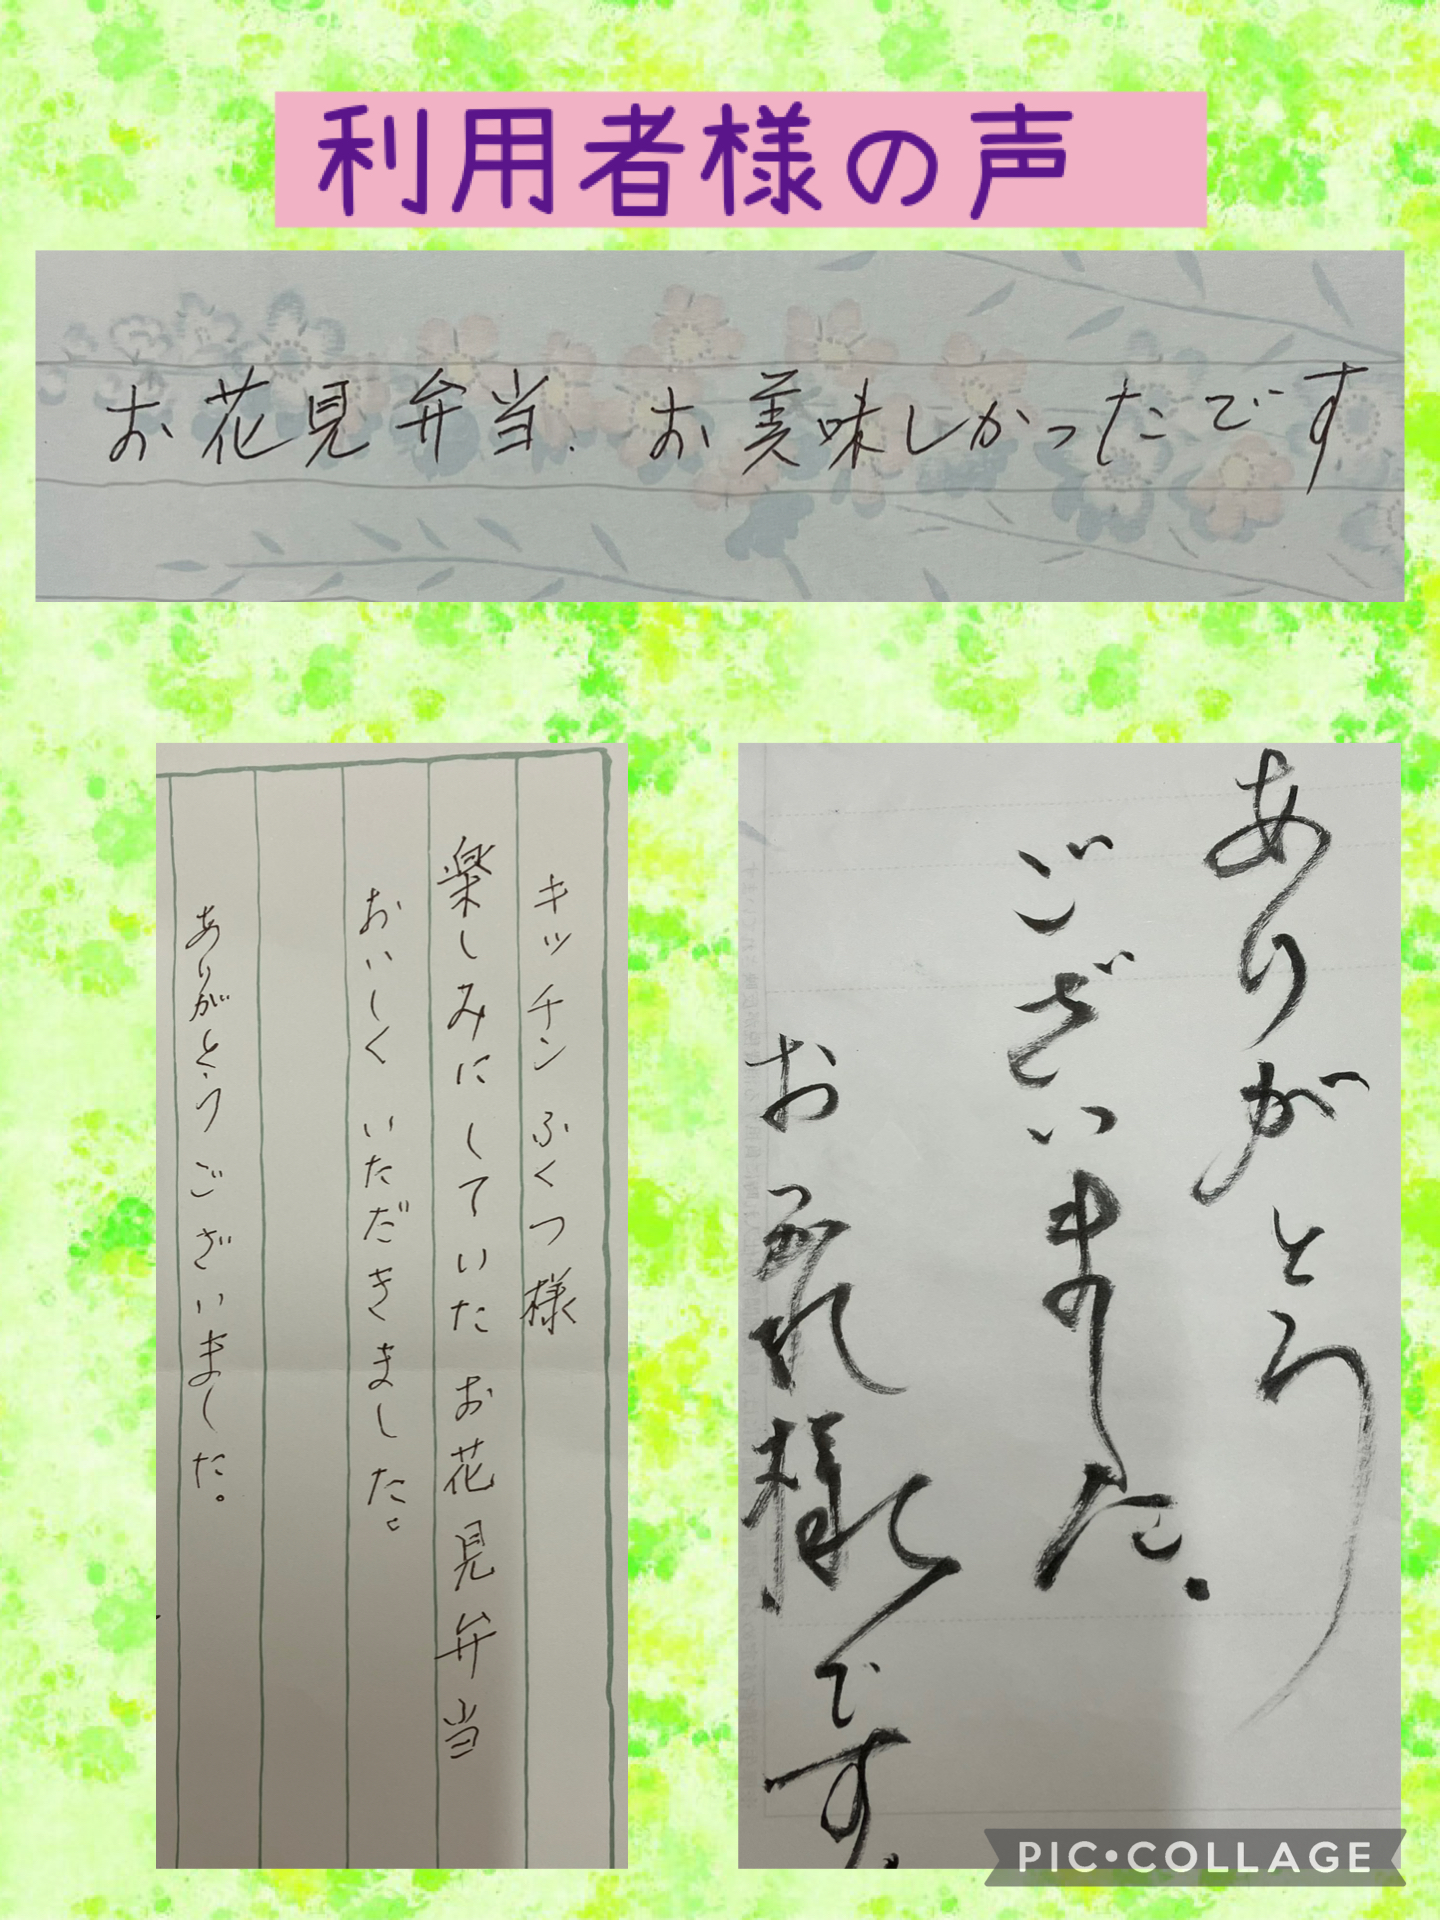 利用者様の声
お花見弁当、お美味しかったです
キッチンふくつ様
楽しみにしていたお花見弁当
おいしくいただきました。
ありがとうございました。
ありがとう
ございました。
お疲れ様です。
PIC•COLLAGE